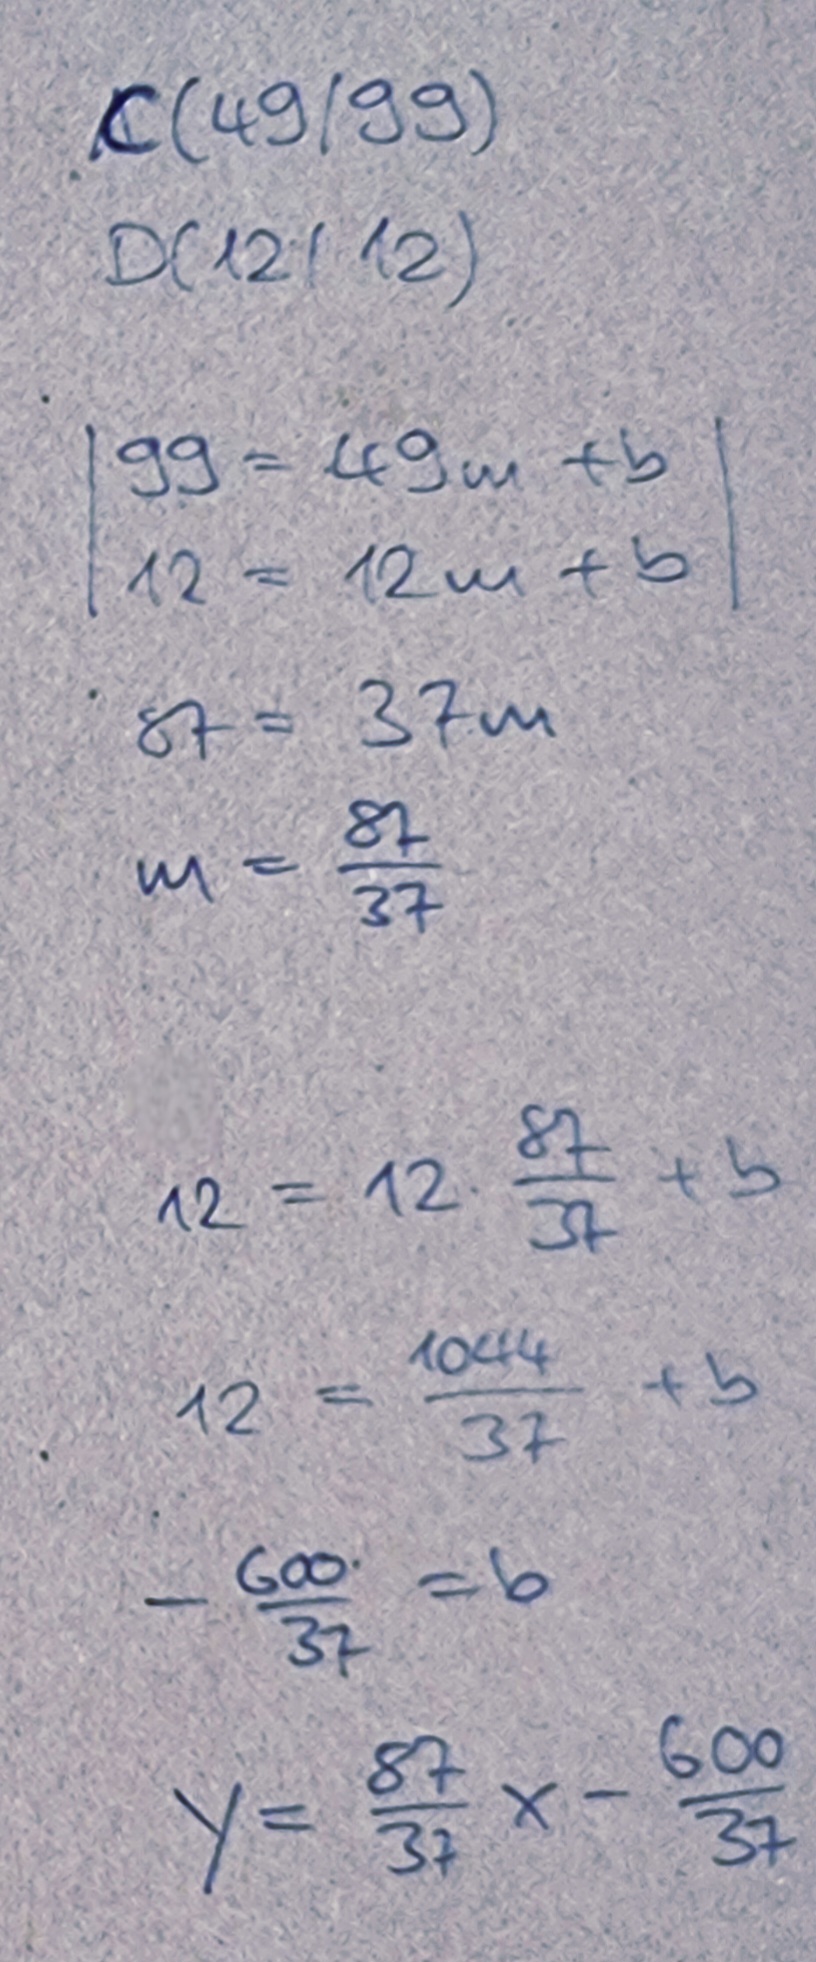 C(49/99)
D(12/12)
|99 = 49m + b|
|12 = 12m + b|
87 = 37m
m = 87/37
12 = 12 · 87/37 + b
12 = 1044/37 + b
- 600/37 = b
y = 87/37 x - 600/37